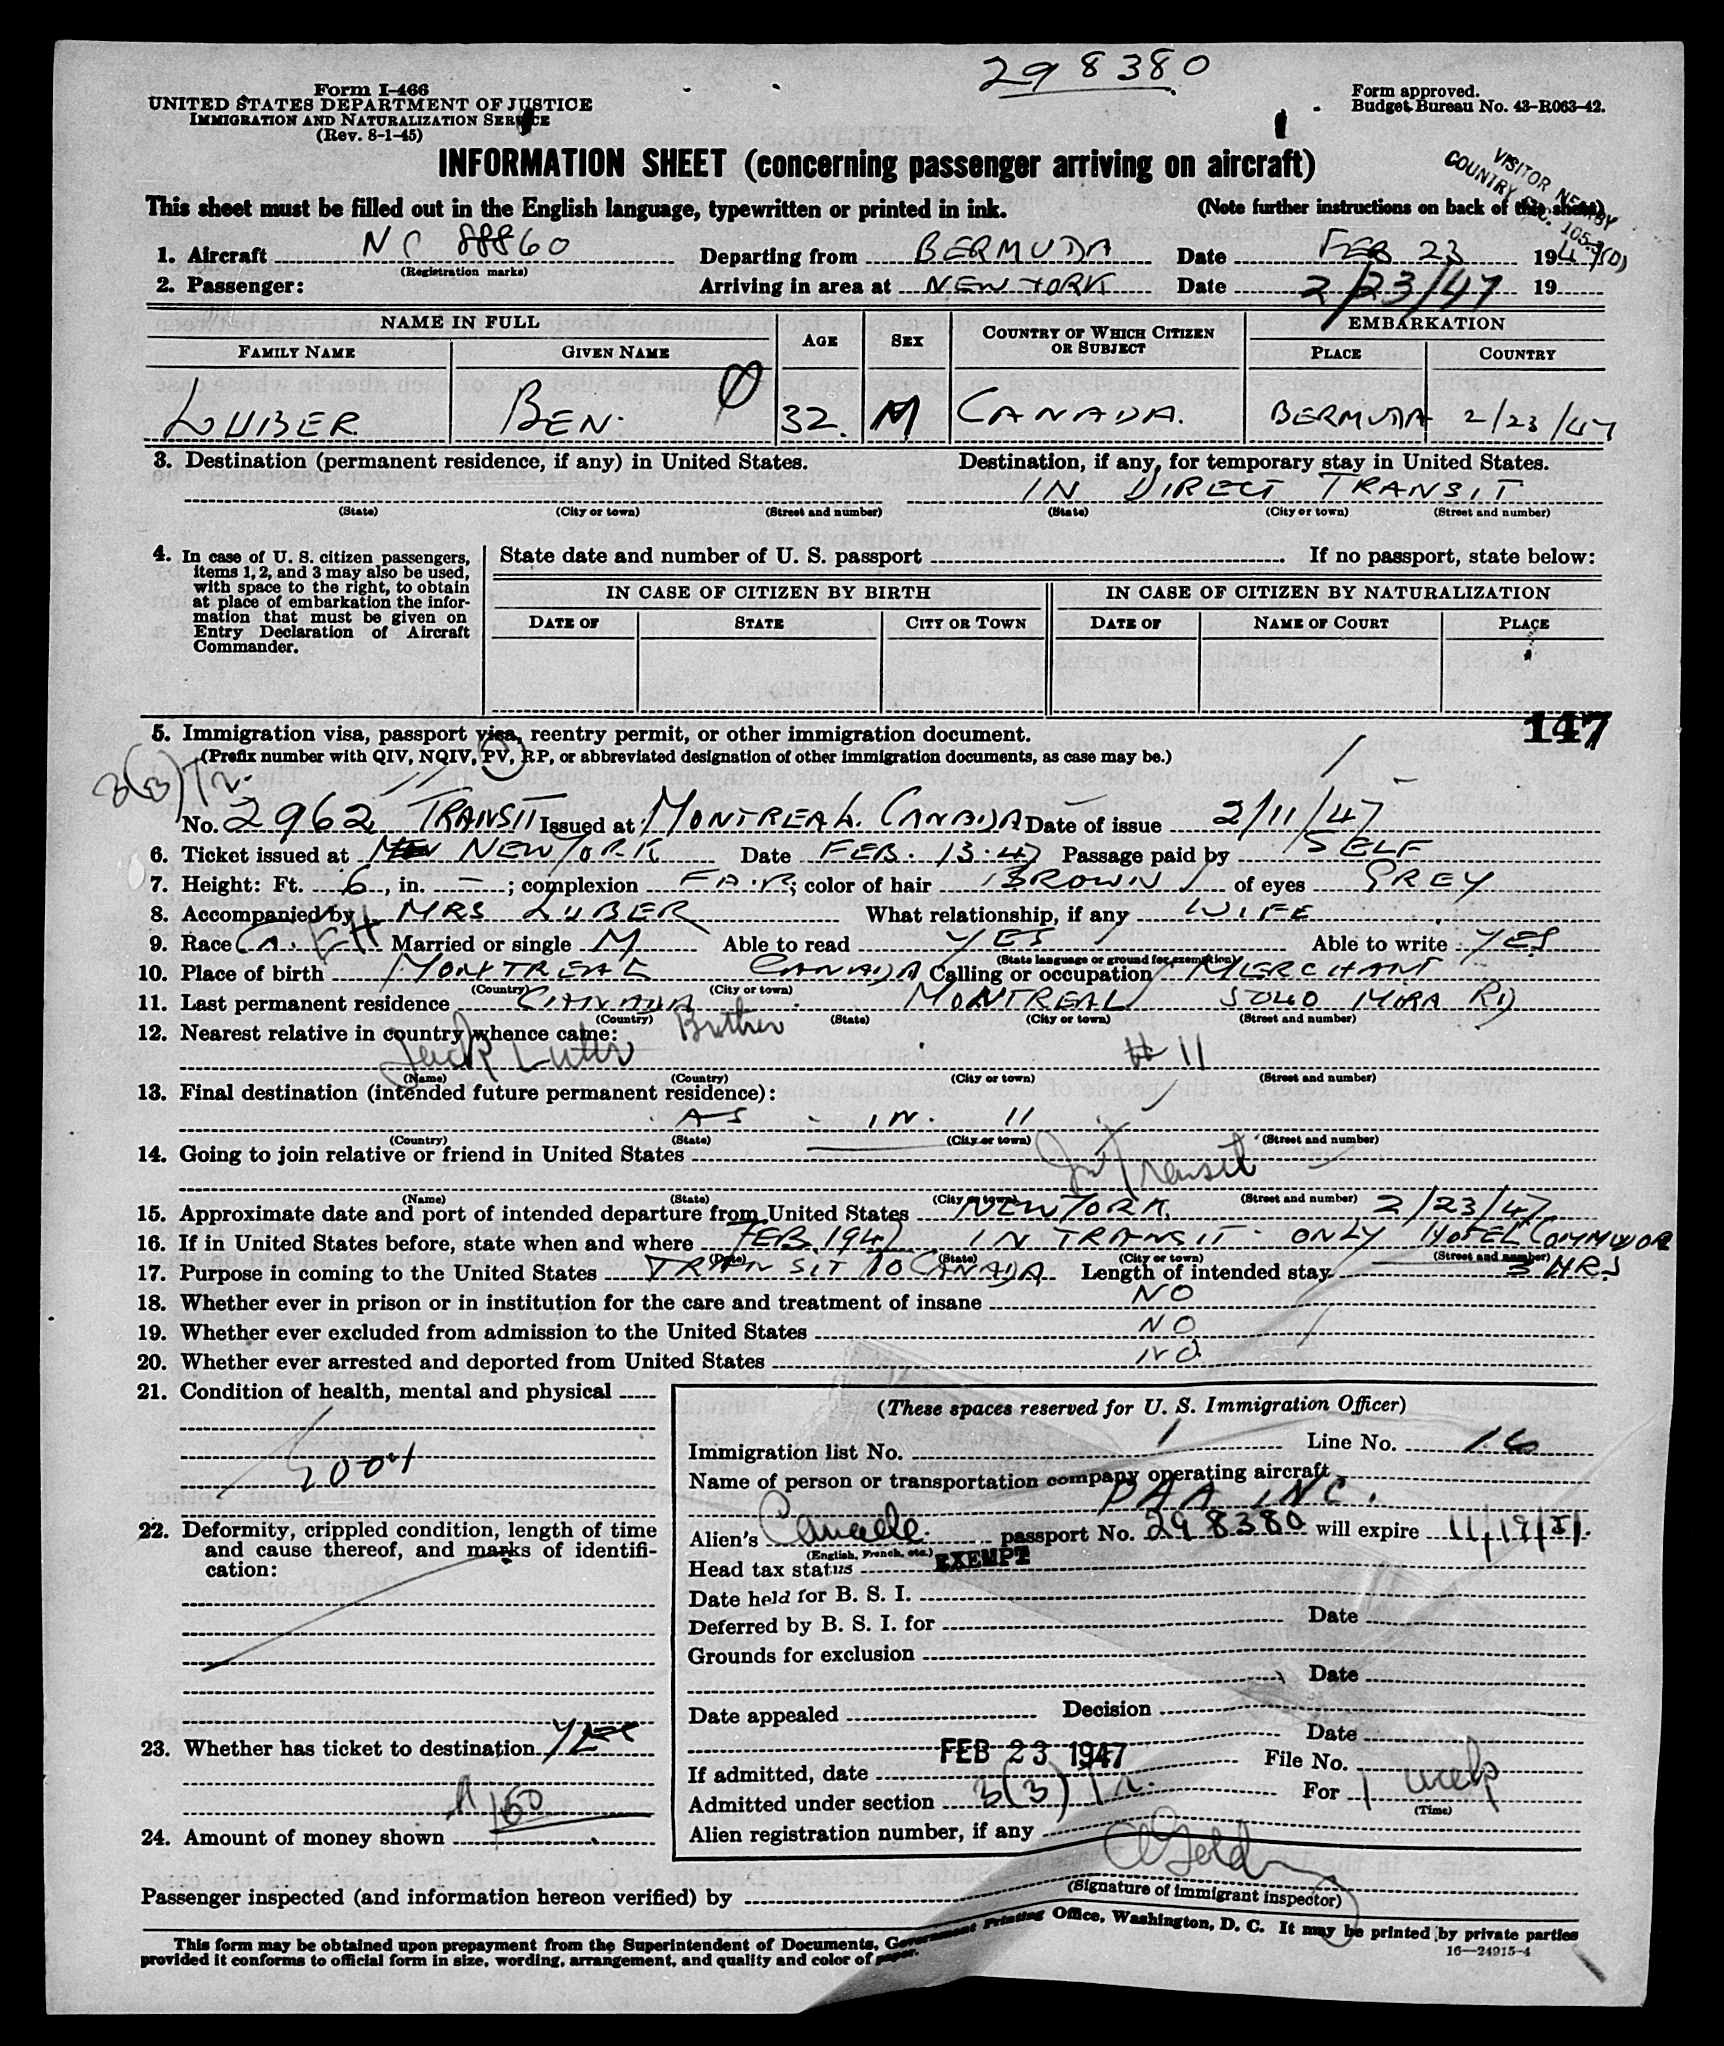 298380
Form I-466
UNITED STATES DEPARTMENT OF JUSTICE
IMMIGRATION AND NATURALIZATION SERVICE
(Rev. 8-1-45)
Form approved.
Budget Bureau No. 43-R063-42.
INFORMATION SHEET (concerning passenger arriving on aircraft)
VISITOR NEARBY
COUNTRY
This sheet must be filled out in the English language, typewritten or printed in ink. (Note further instructions on back of this sheet)
1. Aircraft NC 88860 Departing from BERMUDA Date FEB 23 1947
(Registration marks)
2. Passenger: Arriving in area at NEW YORK Date 2/23/47 19
NAME IN FULL AGE SEX COUNTRY OF WHICH CITIZEN OR SUBJECT EMBARKATION
FAMILY NAME GIVEN NAME PLACE COUNTRY
LUBER BEN. 32. M CANADA. BERMUDA 2/23/47
3. Destination (permanent residence, if any) in United States. Destination, if any, for temporary stay in United States.
IN DIRECT TRANSIT
(State) (City or town) (Street and number) (State) (City or town) (Street and number)
4. In case of U. S. citizen passengers, items 1, 2, and 3 may also be used, with space to the right, to obtain at place of embarkation the information that must be given on Entry Declaration of Aircraft Commander.
State date and number of U. S. passport If no passport, state below:
IN CASE OF CITIZEN BY BIRTH IN CASE OF CITIZEN BY NATURALIZATION
DATE OF STATE CITY OR TOWN DATE OF NAME OF COURT PLACE
147
5. Immigration visa, passport visa, reentry permit, or other immigration document.
(Prefix number with QIV, NQIV, PV, RP, or abbreviated designation of other immigration documents, as case may be.)
3(3) Tr.
No. 2962 TRANSIT Issued at MONTREAL. CANADA Date of issue 2/11/47
6. Ticket issued at NEW YORK Date FEB. 13.47 Passage paid by SELF
7. Height: Ft. 6, in. —; complexion FAIR; color of hair BROWN of eyes GREY
8. Accompanied by MRS LUBER What relationship, if any WIFE
9. Race Married or single M Able to read YES Able to write YES
(State language or ground for exemption)
10. Place of birth MONTREAL CANADA Calling or occupation MERCHANT
(Country) (City or town)
11. Last permanent residence CANADA MONTREAL MIRA RD
(Country) (State) (City or town) (Street and number)
12. Nearest relative in country whence came: Brother
Jack Luber # 11
(Name) (Country) (City or town) (Street and number)
13. Final destination (intended future permanent residence):
AS IN. 11
(Country) (State) (City or town) (Street and number)
14. Going to join relative or friend in United States
In Transit
(Name) (State) (City or town) (Street and number)
15. Approximate date and port of intended departure from United States NEW YORK 2/23/47
16. If in United States before, state when and where FEB. 1947 IN TRANSIT ONLY HOTEL COMMODOR
(Date) (State) (City or town) (Street and number)
17. Purpose in coming to the United States TRANSIT TO CANADA Length of intended stay 3 HRS
18. Whether ever in prison or in institution for the care and treatment of insane NO
19. Whether ever excluded from admission to the United States NO
20. Whether ever arrested and deported from United States NO
21. Condition of health, mental and physical
GOOD
22. Deformity, crippled condition, length of time and cause thereof, and marks of identification:
23. Whether has ticket to destination YES
150
24. Amount of money shown
(These spaces reserved for U. S. Immigration Officer)
Immigration list No. 1 Line No. 16
Name of person or transportation company operating aircraft
PAA INC.
Alien's Canada passport No. 298380 will expire 11/19/51.
(English, French, etc.)
Head tax status EXEMPT
Date held for B. S. I.
Deferred by B. S. I. for Date
Grounds for exclusion
Date
Date appealed Decision
Date
If admitted, date FEB 23 1947 File No.
Admitted under section 3(3) Tr. For 1 week
(Time)
Alien registration number, if any
Passenger inspected (and information hereon verified) by
(Signature of immigrant inspector)
This form may be obtained upon prepayment from the Superintendent of Documents, Government Printing Office, Washington, D. C. It may be printed by private parties
provided it conforms to official form in size, wording, arrangement, and quality and color of paper.
16—24915-4